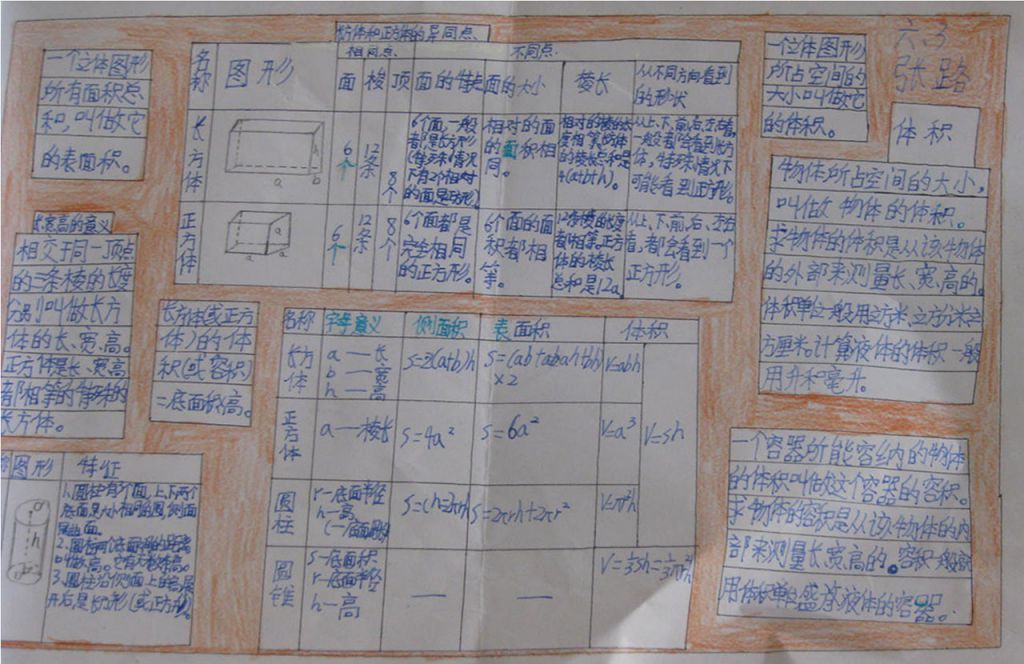 长方体和正方体的异同点、
相同点、
不同点:
名称
图形
面
棱
顶
面的特点
面的大小
棱长
从不同方向看到
的形状
长方体
h
a
b
6个
12条
8个
6个面,一般
都是长方形
(特殊情况
下有2个相对
的面是正方形)
相对的面
的面积相
同。
相对的棱的长
度相等,长方体
的棱长总和是
4(a+b+h)。
从上、下、前、后、左、右看,
一般都会看到长方
体,特殊情况下
可能看到正方形。
正方体
a
a
a
6个
12条
8个
6个面都是
完全相同
的正方形。
6个面的面
积都相
等。
12条棱的长度
都相等,正方
体的棱长
总和是12a。
从上、下、前、后、左、右
看,都会看到一个
正方形。
一个立体图形
所有面积总
和,叫做它
的表面积。
长宽高的意义
相交于同一顶点
的三条棱的长度
分别叫做长方
体的长、宽、高。
正方体是长、宽、高
都相等的特殊的
长方体。
长方体(或正方
体)的体
积(或容积)
=底面积高。
图形
特征
O
h
1、圆柱有3个面,上、下两个
底面是大小相同的圆,侧面
是曲面。
2、圆柱两个底面之间的距离
叫做高。它有无数条高。
3、圆柱沿侧面上的高展
开后是长方形(或正方形)。
名称
字母意义
侧面积
表面积
体积
长方体
a—长
b—宽
h—高
S=2(a+b)h
S=(ab+ah+bh)
×2
V=abh
正方体
a—棱长
S=4a²
S=6a²
V=a³
V=sh
圆柱
r—底面半径
h—高
S=ch=2πrh
S=2πrh+2πr²
V=πr²h
圆锥
S—底面积
r—底面半径
h—高
—
—
V=1/3sh=1/3πr²h
一个立体图形
所占空间的
大小叫做它
的体积。
六3
张路
体积
物体所占空间的大小,
叫做物体的体积。
求物体的体积是从该物体
的外部来测量长、宽、高的。
体积单位一般用立方米、立方分米、立
方厘米。计算液体的体积一般
用升和毫升。
一个容器所能容纳的物体
的体积叫做这个容器的容积。
求物体的容积是从该物体的内
部来测量长、宽、高的。容积一般
用体积单位盛放液体的容器。